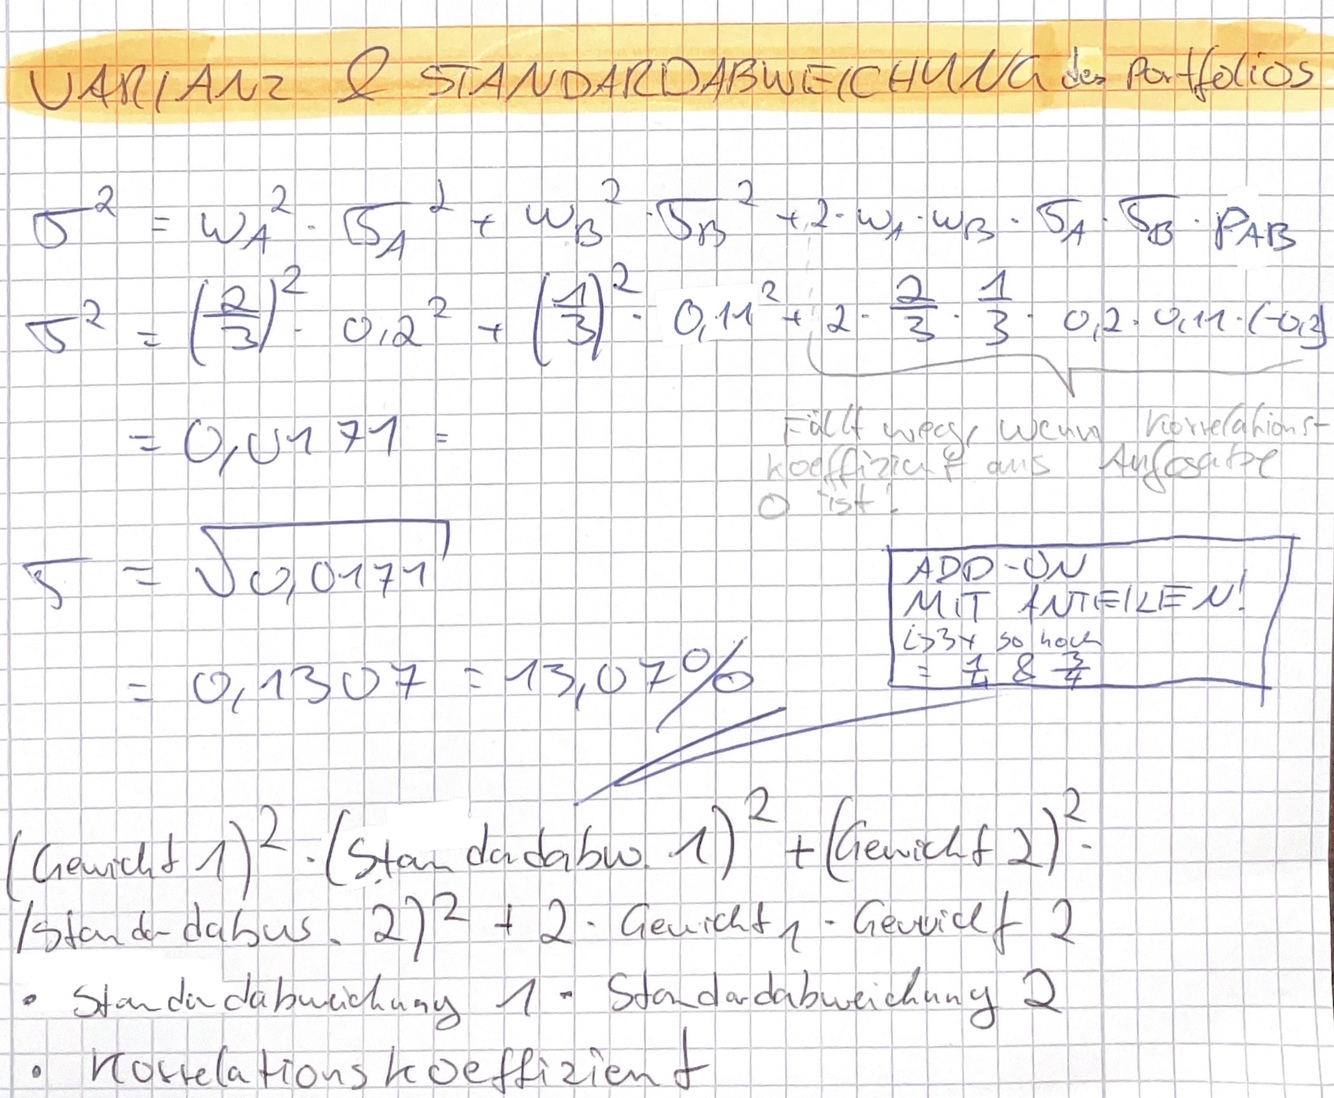 VARIANZ & STANDARDABWEICHUNG des Portfolios
σ² = wA² · σA² + wB² · σB² + 2 · wA · wB · σA · σB · ρAB
σ² = (2/3)² · 0,2² + (1/3)² · 0,11² + 2 · 2/3 · 1/3 · 0,2 · 0,11 · (-0,2)
= 0,0171 =
Fällt weg, wenn Korrelations-
koeffizient aus Aufgabe
0 ist!
σ = √0,0171
= 0,1307 = 13,07%
ADD-ON
MIT ANTEILEN!
L>3x so hoch
= 1/4 & 3/4
(Gewicht 1)² · (Standadabw. 1)² + (Gewicht 2)² ·
(Standadabw. 2)² + 2 · Gewicht 1 · Gewicht 2
· Standadabweichung 1 · Standardabweichung 2
· Korrelationskoeffizient